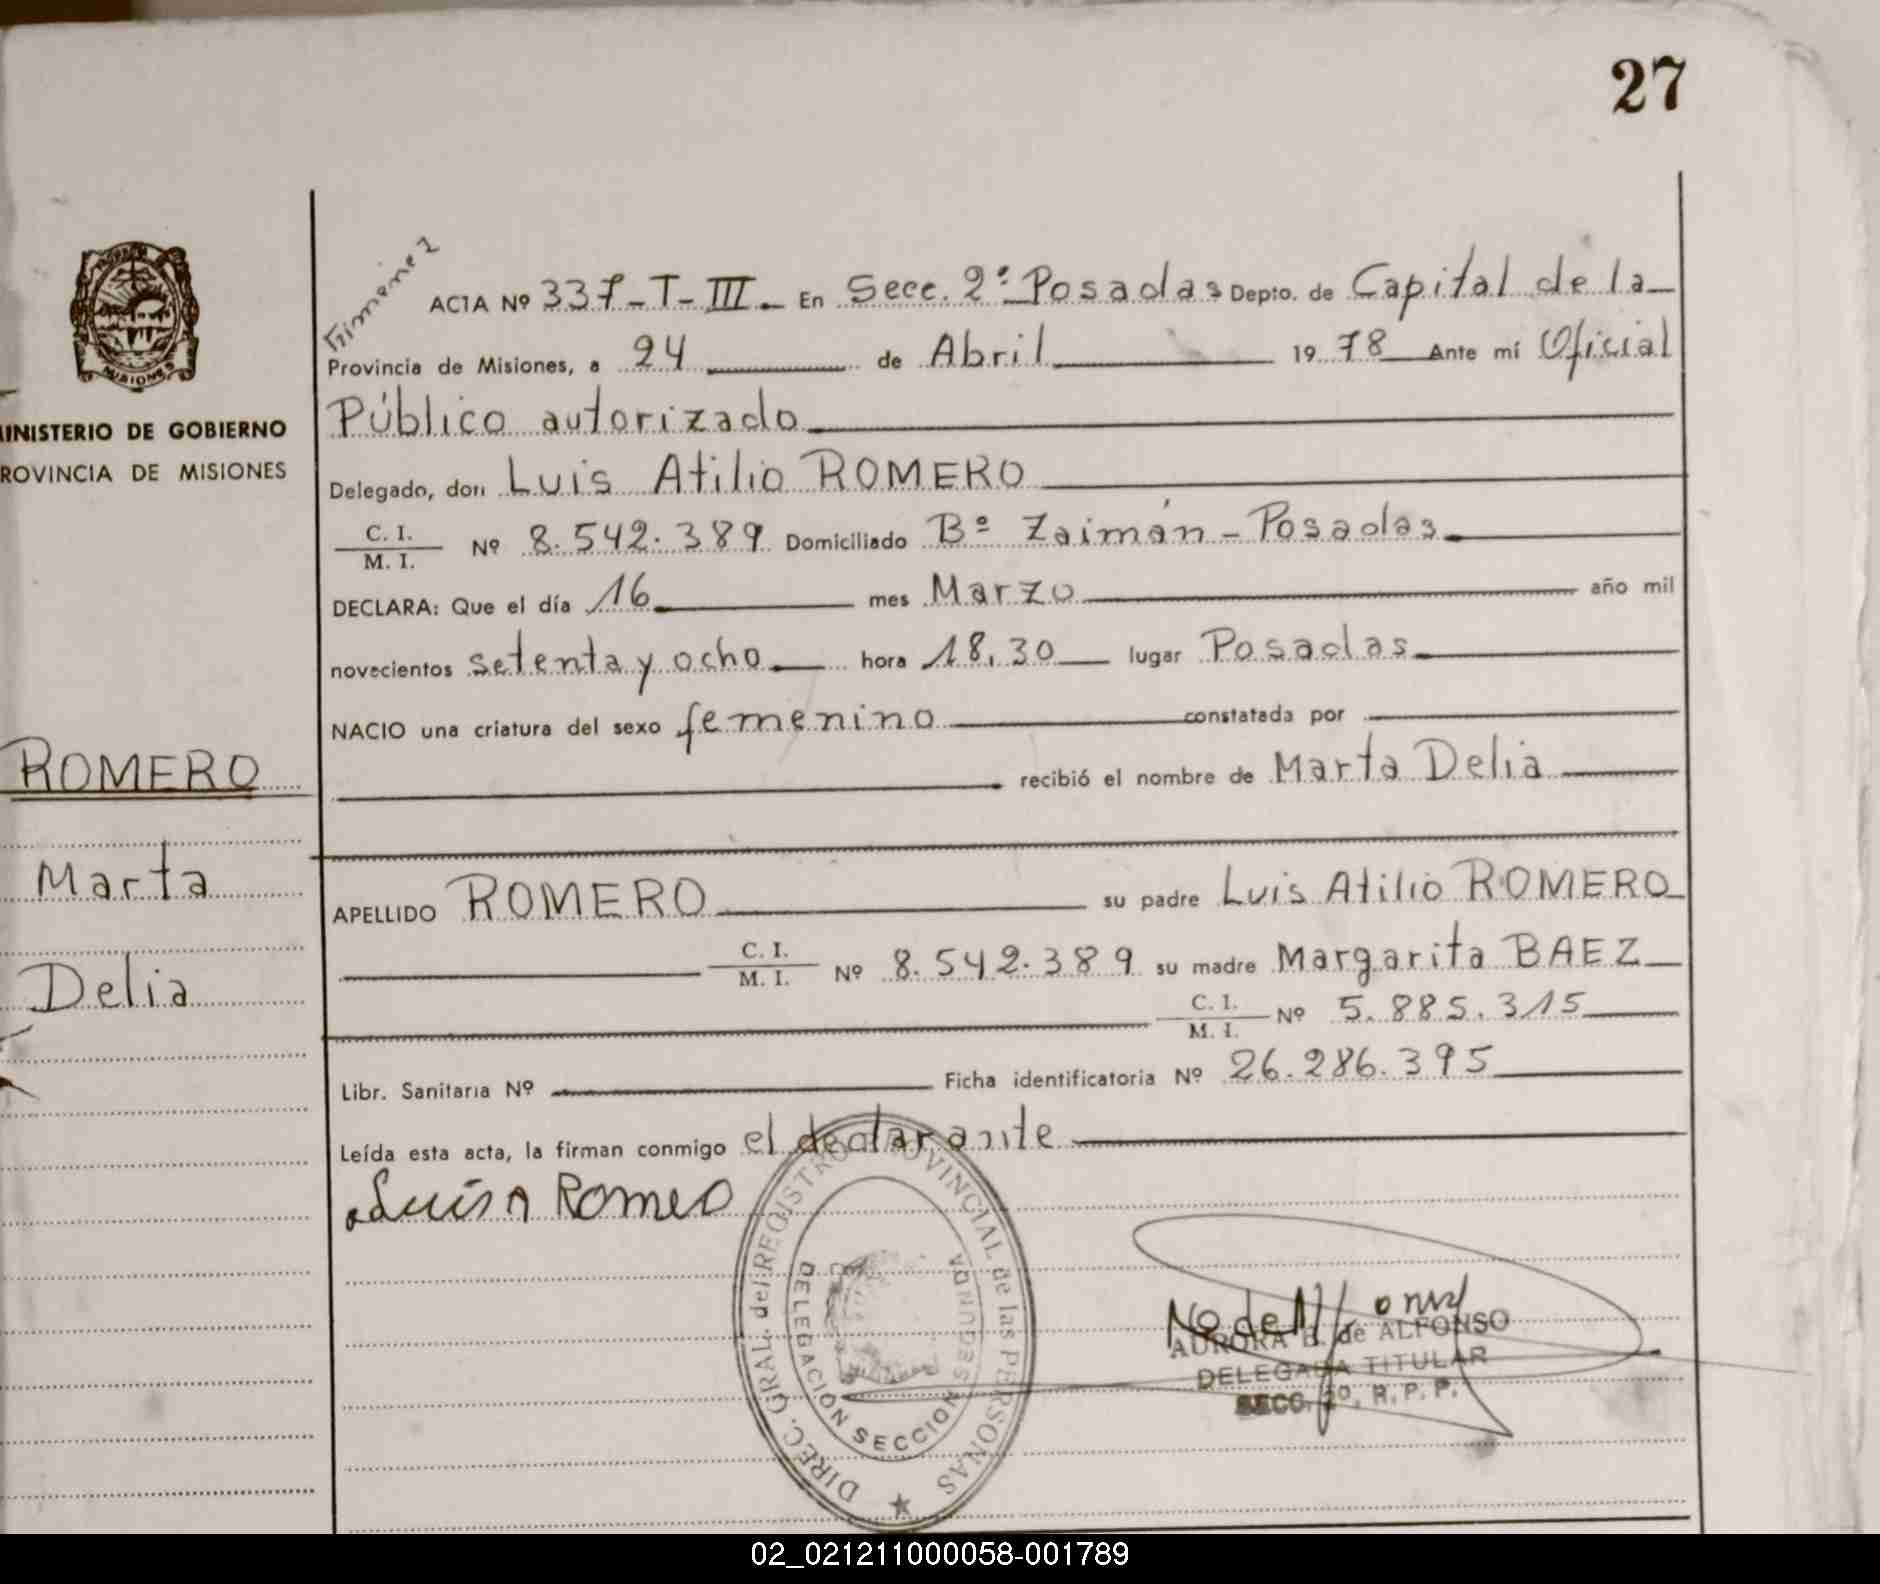 27
Gimenez
ACTA Nº 337-T-III. En Secc. 2ª Posadas Depto. de Capital de la
Provincia de Misiones, a 24 de Abril 1978 Ante mí Oficial
Público autorizado
Delegado, don Luis Atilio ROMERO
C. I.
M. I. Nº 8.542.389 Domiciliado Bº Zaimán - Posadas
DECLARA: Que el día 16 mes Marzo año mil
novecientos setenta y ocho hora 18,30 lugar Posadas
NACIO una criatura del sexo femenino constatada por
recibió el nombre de Marta Delia
APELLIDO ROMERO su padre Luis Atilio ROMERO
C. I.
M. I. Nº 8.542.389 su madre Margarita BAEZ
C. I.
M. I. Nº 5.885.315
Libr. Sanitaria Nº Ficha identificatoria Nº 26.286.395
Leída esta acta, la firman conmigo el declarante
Luis A Romero
MISIONES
MINISTERIO DE GOBIERNO
PROVINCIA DE MISIONES
ROMERO
Marta
Delia
DIREC. GRAL. del REGISTRO PROVINCIAL de las PERSONAS
DELEGACIÓN SECCION SEGUNDA
AURORA B. de ALFONSO
DELEGADA TITULAR
SECC. 2º. R. P. P.
02_021211000058-001789